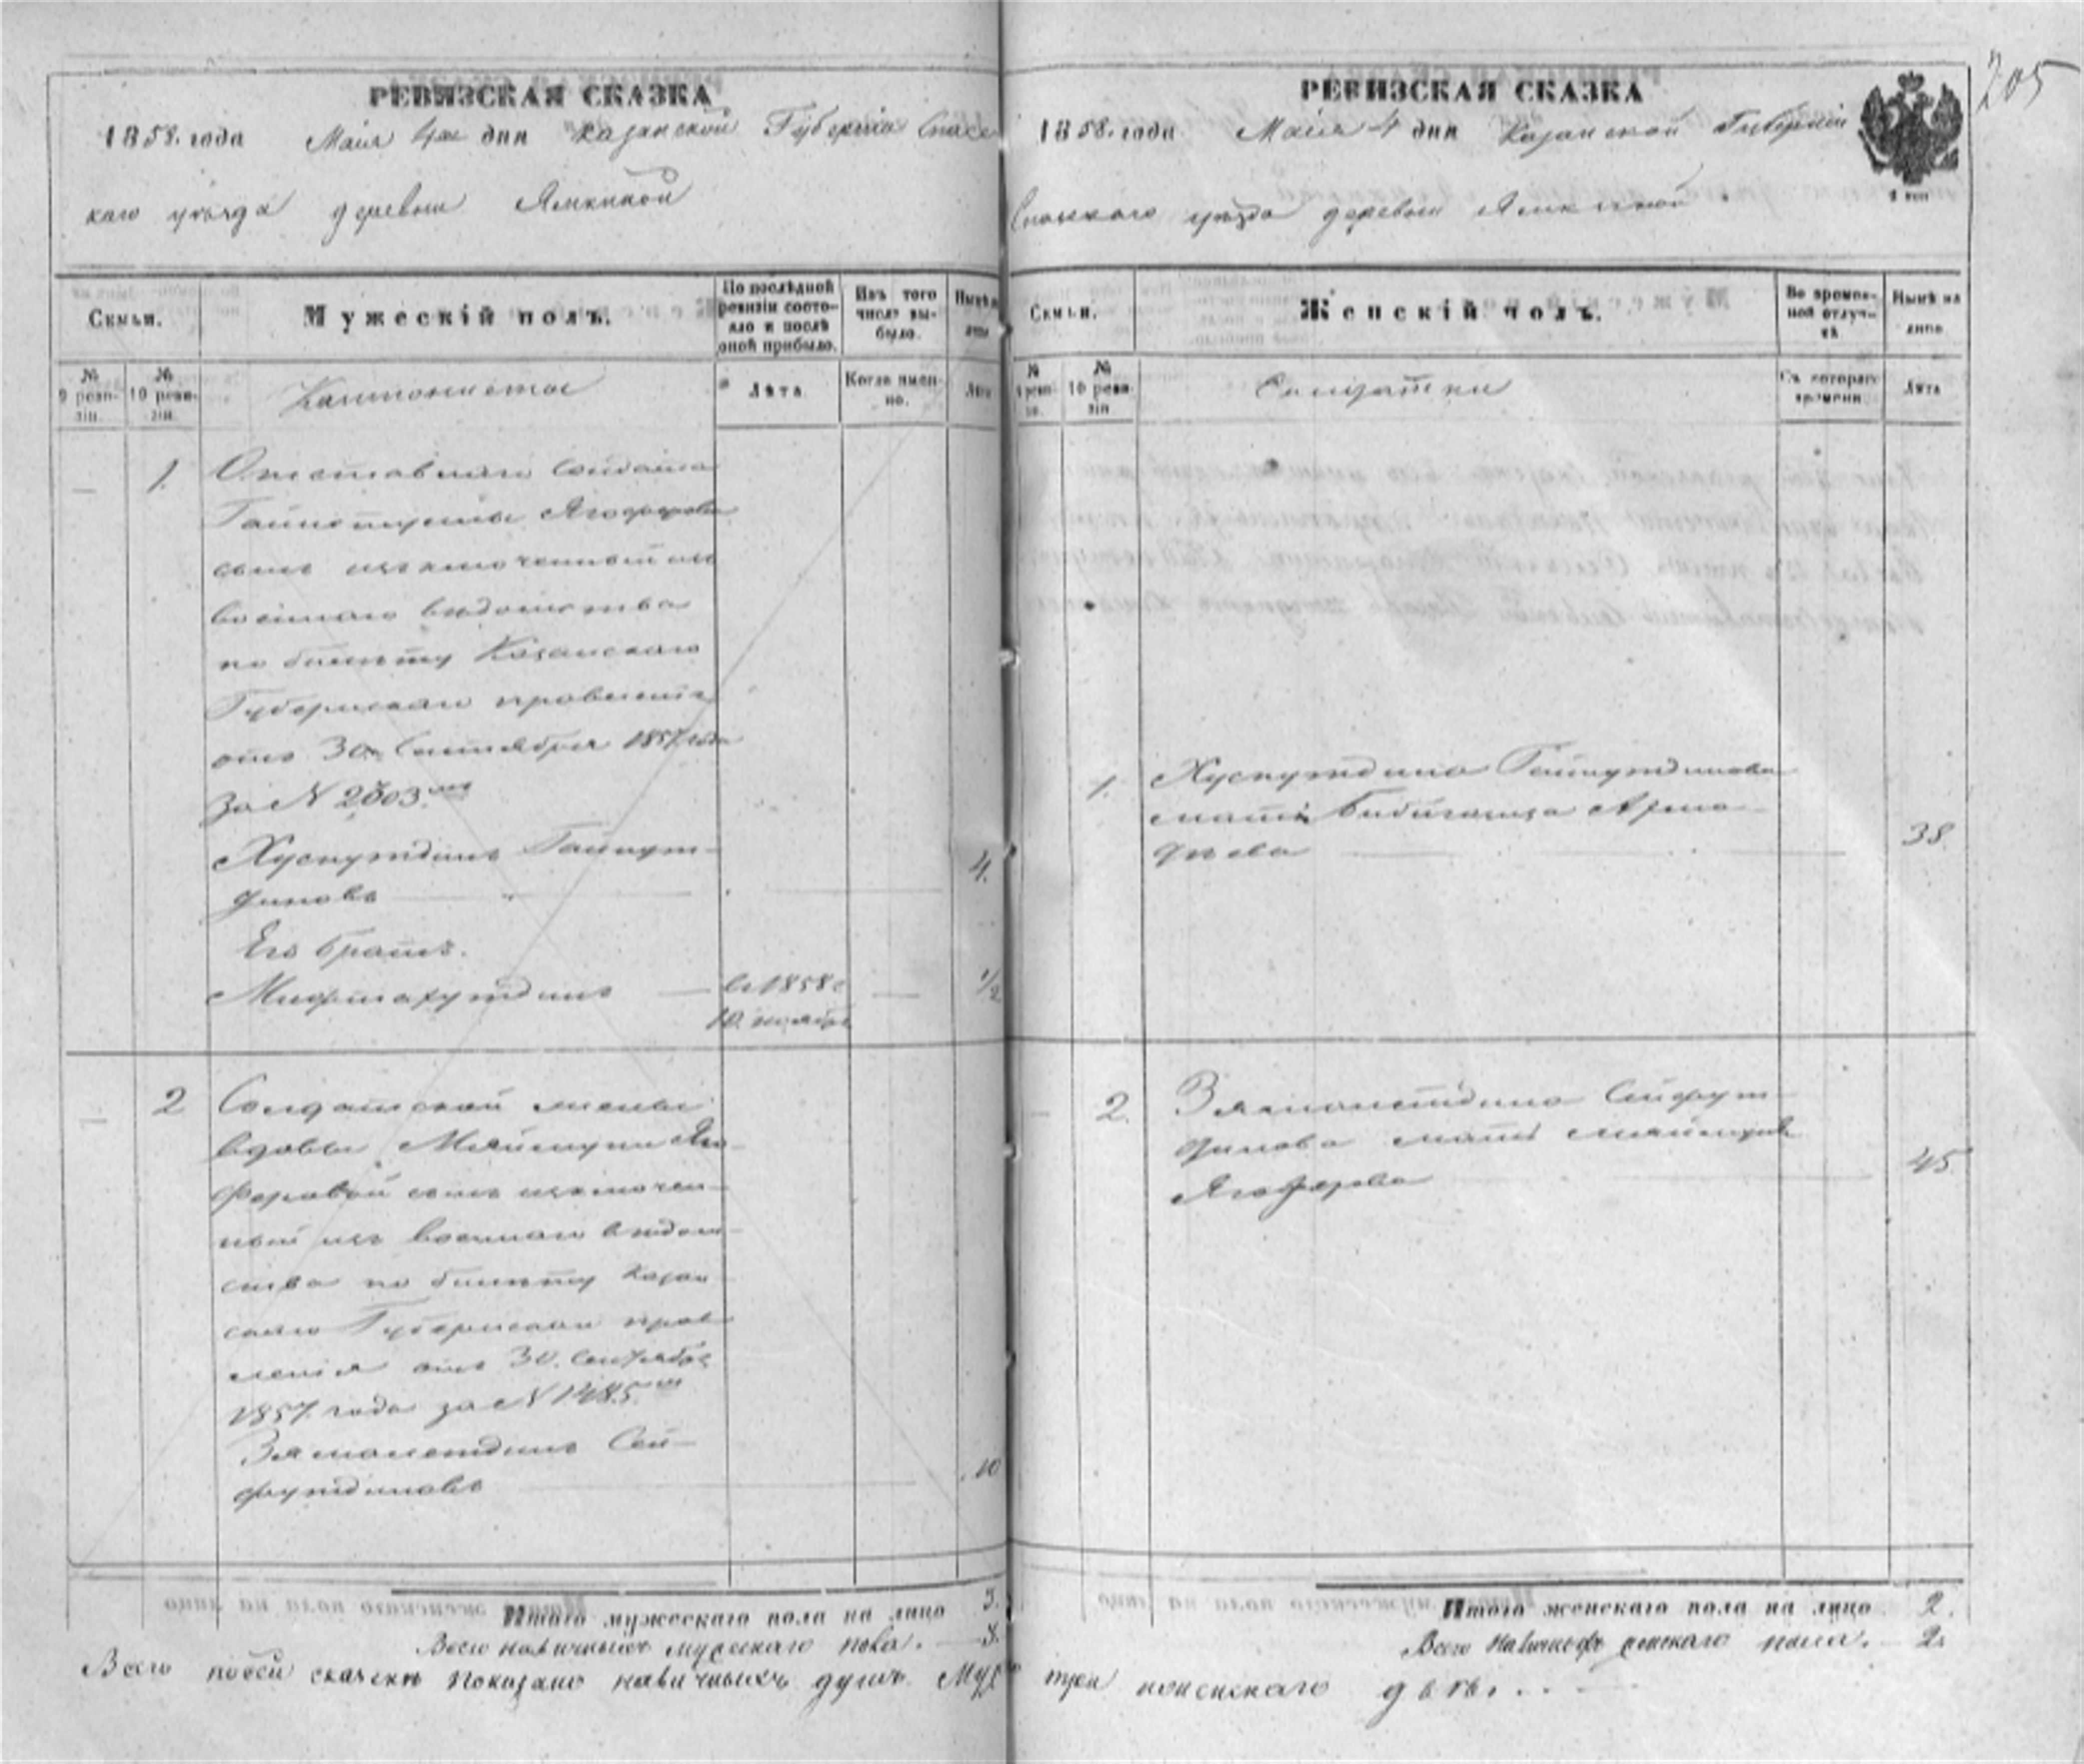 РЕВИЗСКАЯ СКАЗКА
1858. года Маія 4го дня Казанской Губерніи Спасс
каго уѣзда деревни Ямкиной
Семьи.
Мужескій полъ.
По послѣдней ревизіи состояло и послѣ оной прибыло.
Изъ того числа выбыло.
Нынѣ на лицо
№ 9 ревизіи.
№ 10 ревизіи.
Кантонисты
Лѣта
Когда именно.
Лѣта
1.
Отставнаго Солдата
Гайнотдина Ягоферова
сынъ изключенный изъ
военнаго вѣдомства
по билѣту Казанскаго
Губернскаго правленія
отъ 30 Сентября 1857 года
За N 2803
Хуснутдинъ Гайнут-
диновъ 4.
Его братъ.
Мифтахутдинъ въ 1858 г 1/2
10 ноября
2 Солдатской жены
вдовы Мяймуни Яго-
феровой сынъ изключен-
ной изъ военнаго вѣдом-
ства по билѣту Казан
скаго Губернскаго прав
ленія отъ 30. Сентября
1857. года за N 1485
Зямалетдинъ Сей-
футдиновъ 10
Итого мужескаго пола на лицо 3.
Всего наличныхъ мужескаго пола. 3.
РЕВИЗСКАЯ СКАЗКА
205
1858. года Маія 4 дня Казанской Губерніи
Спасскаго уѣзда деревни Ямкиной.
Семьи.
Женскій полъ.
Во временной отлучкѣ
Нынѣ на лицо
№ 9 ревизіи.
№ 10 ревизіи
Солдатки
Съ котораго времени.
Лѣта
1. Хуснутдина Гайнутдинова
мать Бибигайша 38
2. Зямалетдина Сейфут-
динова мать Мяймуня
Ягоферова 45
Итого женскаго пола на лицо 2.
Всего наличныхъ женскаго пола. 2.
Всего по сей сказкѣ показано наличныхъ душъ Муж три женскаго двѣ.